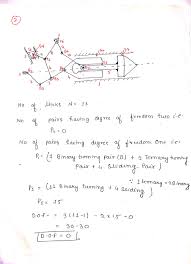 No of links N = 11
No of pairs having degree of freedom two i.e.
P₂ = 0
No of pairs having degree of freedom one i.e.
P₁ = (1 Binary turning pair (D) + 5 Ternary turning
pair + 4 sliding pair)
∵ 1 ternary = 2 Binary
P₁ = (11 Binary turning + 4 sliding)
P₁ = 15
D.O.F = 3(11-1) - 2×15 - 0
= 30-30
D.O.F = 0